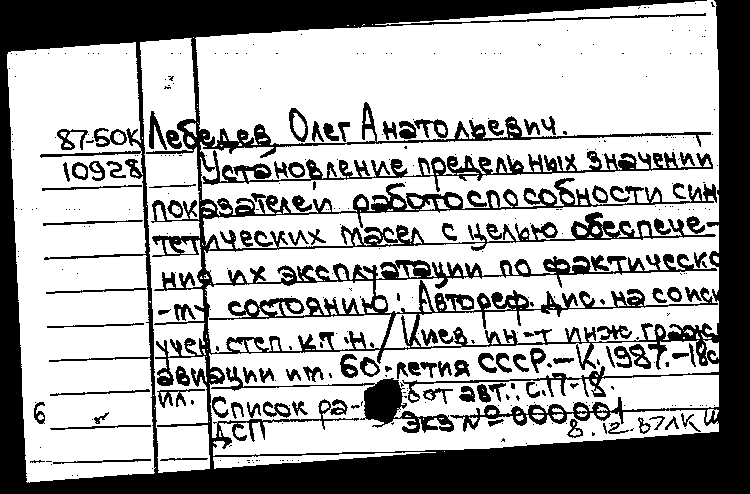 87-50К Лебедев, Олег Анатольевич.
10928 Установление предельных значений
показателей работоспособности син-
тетических масел с целью обеспече-
ния их эксплуатации по фактическо
-му состоянию: Автореф. дис. на соиск
учен. степ. к.т.н. / Киев. ин-т инж. гражд
авиации им. 60-летия СССР. – К. 1987. – 18с
ил.
Список ра- бот авт.: с. 17-18.
6
ДСП Экз № 000001
8.12.87 ЛК Ш